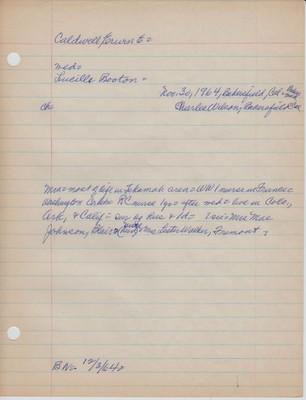 Caldwell, Erwin E =
med =
Lucille Booton =
Nov. 30, 1964, Bakersfield, Cal =
ch = Charles Wilson, Bakersfield Cal
Mrs = most of life in Tekamah area = WW1 nurse in France =
Washington RC nurse 1 yr = after med = live in Colo,
Ark, & Calif = sur by hus & 1d = 1 sis = Mrs Mae
Johnson, Blair & Mrs Lester Walker, Fremont
B No- 12/3/64 =